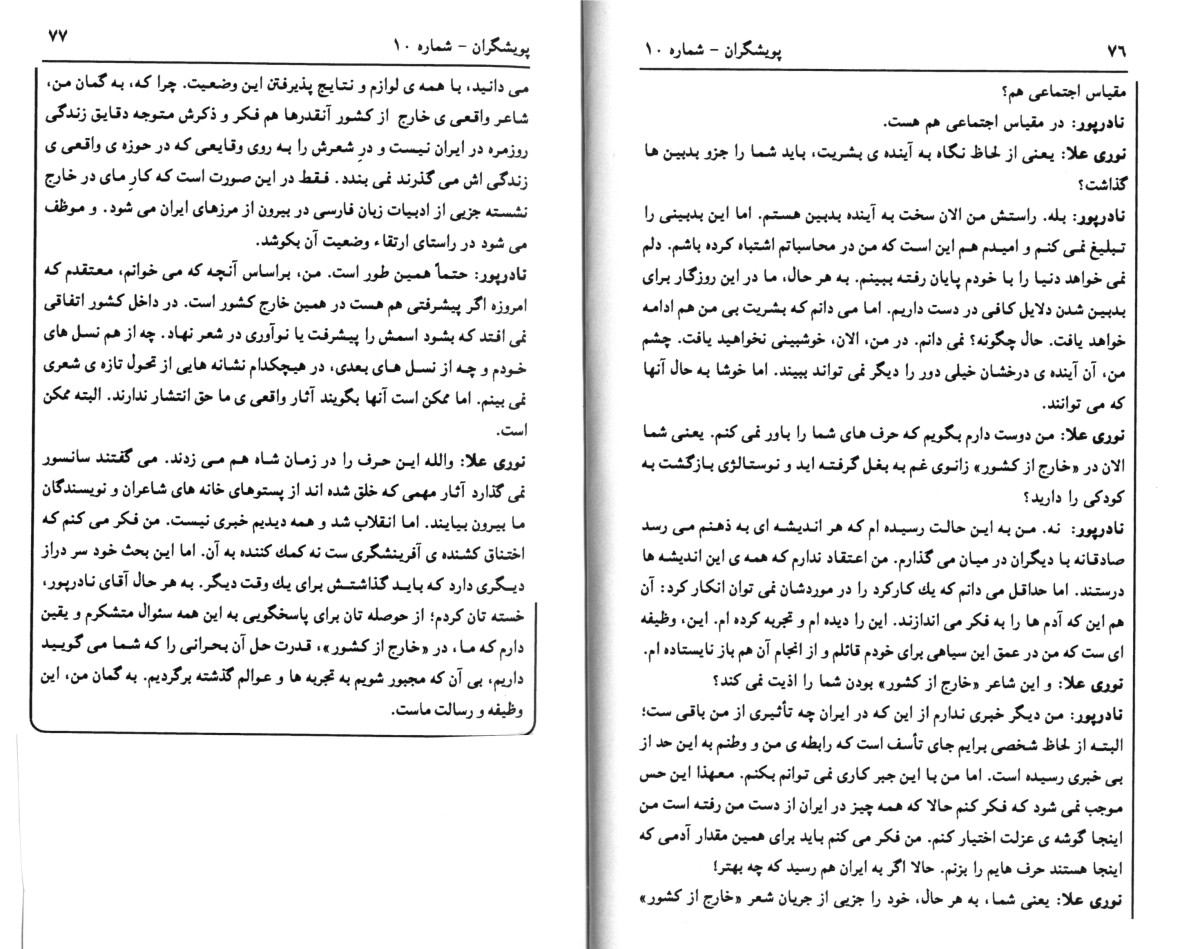 ۷۶
پویشگران - شماره ۱۰
مقیاس اجتماعی هم؟
نادرپور: در مقیاس اجتماعی هم هست.
نوری علا: یعنی از لحاظ نگاه به آینده ی بشریت، باید شما را جزو بدبین ها
گذاشت؟
نادرپور: بله. راستش من الان سخت به آینده بدبین هستم. اما این بدبینی را
تبلیغ نمی کنم و امیدم هم این است که من در محاسباتم اشتباه کرده باشم. دلم
نمی خواهد دنیا را با خودم پایان رفته ببینم. به هر حال، ما در این روزگار برای
بدبین شدن دلایل کافی در دست داریم. اما می دانم که بشریت بی من هم ادامه
خواهد یافت. حال چگونه؟ نمی دانم. در من، الان، خوشبینی نخواهید یافت. چشم
من، آن آینده ی درخشان خیلی دور را دیگر نمی تواند ببیند. اما خوشا به حال آنها
که می توانند.
نوری علا: من دوست دارم بگویم که حرف های شما را باور نمی کنم. یعنی شما
الان در «خارج از کشور» زانوی غم به بغل گرفته اید و نوستالژی بازگشت به
کودکی را دارید؟
نادرپور: نه. من به این حالت رسیده ام که هر اندیشه ای به ذهنم می رسد
صادقانه با دیگران در میان می گذارم. من اعتقاد ندارم که همه ی این اندیشه ها
درستند. اما حداقل می دانم که یك کارکرد را در موردشان نمی توان انکار کرد: آن
هم این که آدم ها را به فکر می اندازند. این را دیده ام و تجربه کرده ام. این، وظیفه
ای ست که من در عمق این سیاهی برای خودم قائلم و از انجام آن هم باز نایستاده ام.
نوری علا: و این شاعر «خارج از کشور» بودن شما را اذیت نمی کند؟
نادرپور: من دیگر خبری ندارم از این که در ایران چه تأثیری از من باقی ست؛
البته از لحاظ شخصی برایم جای تأسف است که رابطه ی من و وطنم به این حد از
بی خبری رسیده است. اما من با این جبر کاری نمی توانم بکنم. معهذا این حس
موجب نمی شود که فکر کنم حالا که همه چیز در ایران از دست من رفته است من
اینجا گوشه ی عزلت اختیار کنم. من فکر می کنم باید برای همین مقدار آدمی که
اینجا هستند حرف هایم را بزنم. حالا اگر به ایران هم رسید که چه بهتر!
نوری علا: یعنی شما، به هر حال، خود را جزیی از جریان شعر «خارج از کشور»
پویشگران - شماره ۱۰
۷۷
می دانید، با همه ی لوازم و نتایج پذیرفتن این وضعیت. چرا که، به گمان من،
شاعر واقعی ی خارج از کشور آنقدرها هم فکر و ذکرش متوجه دقایق زندگی
روزمره در ایران نیست و درِ شعرش را به روی وقایعی که در حوزه ی واقعی ی
زندگی اش می گذرند نمی بندد. فقط در این صورت است که کارِ مای در خارج
نشسته جزیی از ادبیات زبان فارسی در بیرون از مرزهای ایران می شود. و موظف
می شود در راستای ارتقاء وضعیت آن بکوشد.
نادرپور: حتماً همین طور است. من، براساس آنچه که می خوانم، معتقدم که
امروزه اگر پیشرفتی هم هست در همین خارج کشور است. در داخل کشور اتفاقی
نمی افتد که بشود اسمش را پیشرفت یا نوآوری در شعر نهاد. چه از هم نسل های
خودم و چه از نسل های بعدی، در هیچکدام نشانه هایی از تحول تازه ی شعری
نمی بینم. اما ممکن است آنها بگویند آثار واقعی ی ما حق انتشار ندارند. البته ممکن
است.
نوری علا: والله این حرف را در زمان شاه هم می زدند. می گفتند سانسور
نمی گذارد آثار مهمی که خلق شده اند از پستوهای خانه های شاعران و نویسندگان
ما بیرون بیایند. اما انقلاب شد و همه دیدیم خبری نیست. من فکر می کنم که
اختناق کشنده ی آفرینشگری ست نه کمك کننده به آن. اما این بحث خود سر دراز
دیگری دارد که باید گذاشتش برای یك وقت دیگر. به هر حال آقای نادرپور،
خسته تان کردم؛ از حوصله تان برای پاسخگویی به این همه سئوال متشکرم و یقین
دارم که ما، در «خارج از کشور»، قدرت حل آن بحرانی را که شما می گویید
داریم، بی آن که مجبور شویم به تجربه ها و عوالم گذشته برگردیم. به گمان من، این
وظیفه و رسالت ماست.